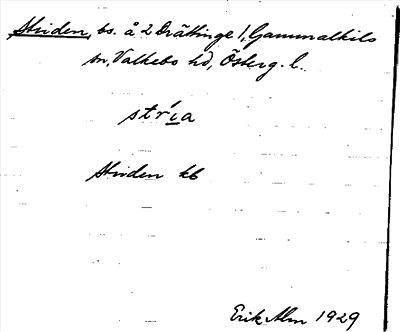 Striden, bs. å 2 Drättinge 1, Gammalkils
sn, Valkebo hd, Österg. l.
strı́a
Striden kb
Erik Alm 1929